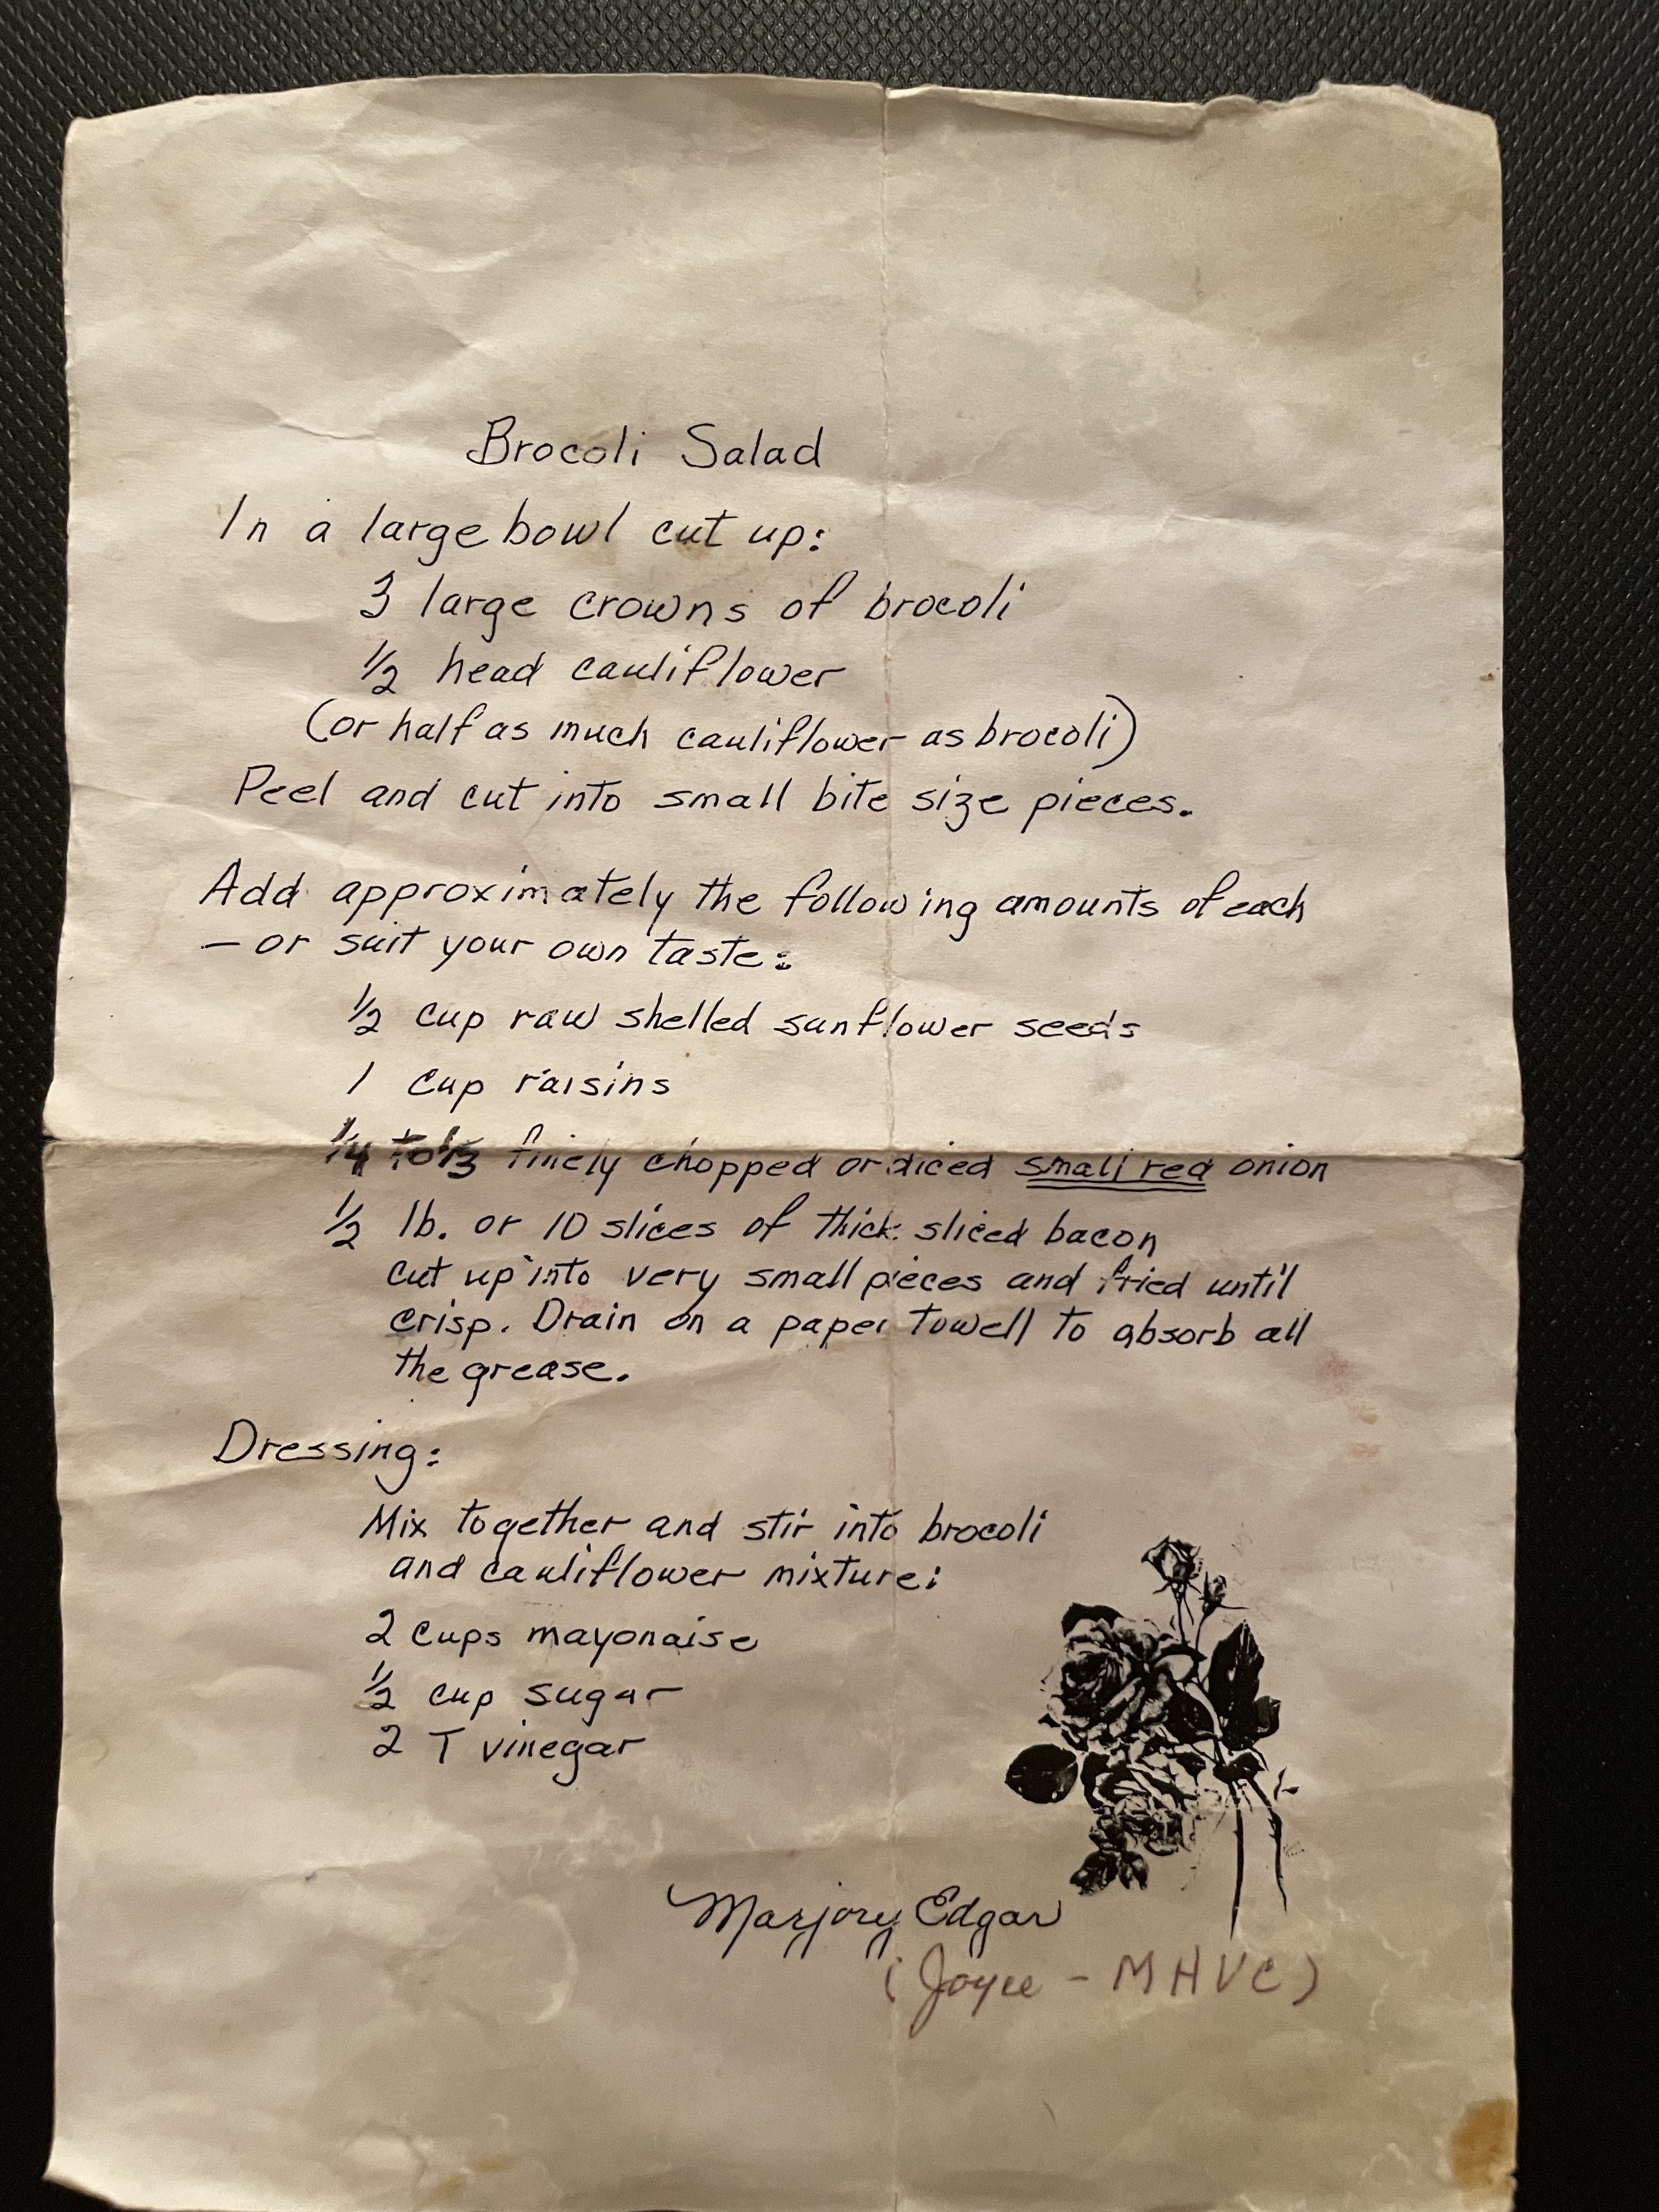 Brocoli Salad
In a large bowl cut up:
3 large crowns of brocoli
1/2 head cauliflower
(or half as much cauliflower as brocoli)
Peel and cut into small bite size pieces.
Add approximately the following amounts of each
— or suit your own taste:
1/2 cup raw shelled sunflower seeds
1 cup raisins
1/4 to 1/3 finely chopped or diced small red onion
1/2 lb. or 10 slices of thick sliced bacon
cut up into very small pieces and fried until
crisp. Drain on a paper towell to absorb all
the grease.
Dressing:
Mix together and stir into brocoli
and cauliflower mixture:
2 cups mayonaise
1/2 cup sugar
2 T vinegar
Marjory Edgar
(Joyce - MHVC)